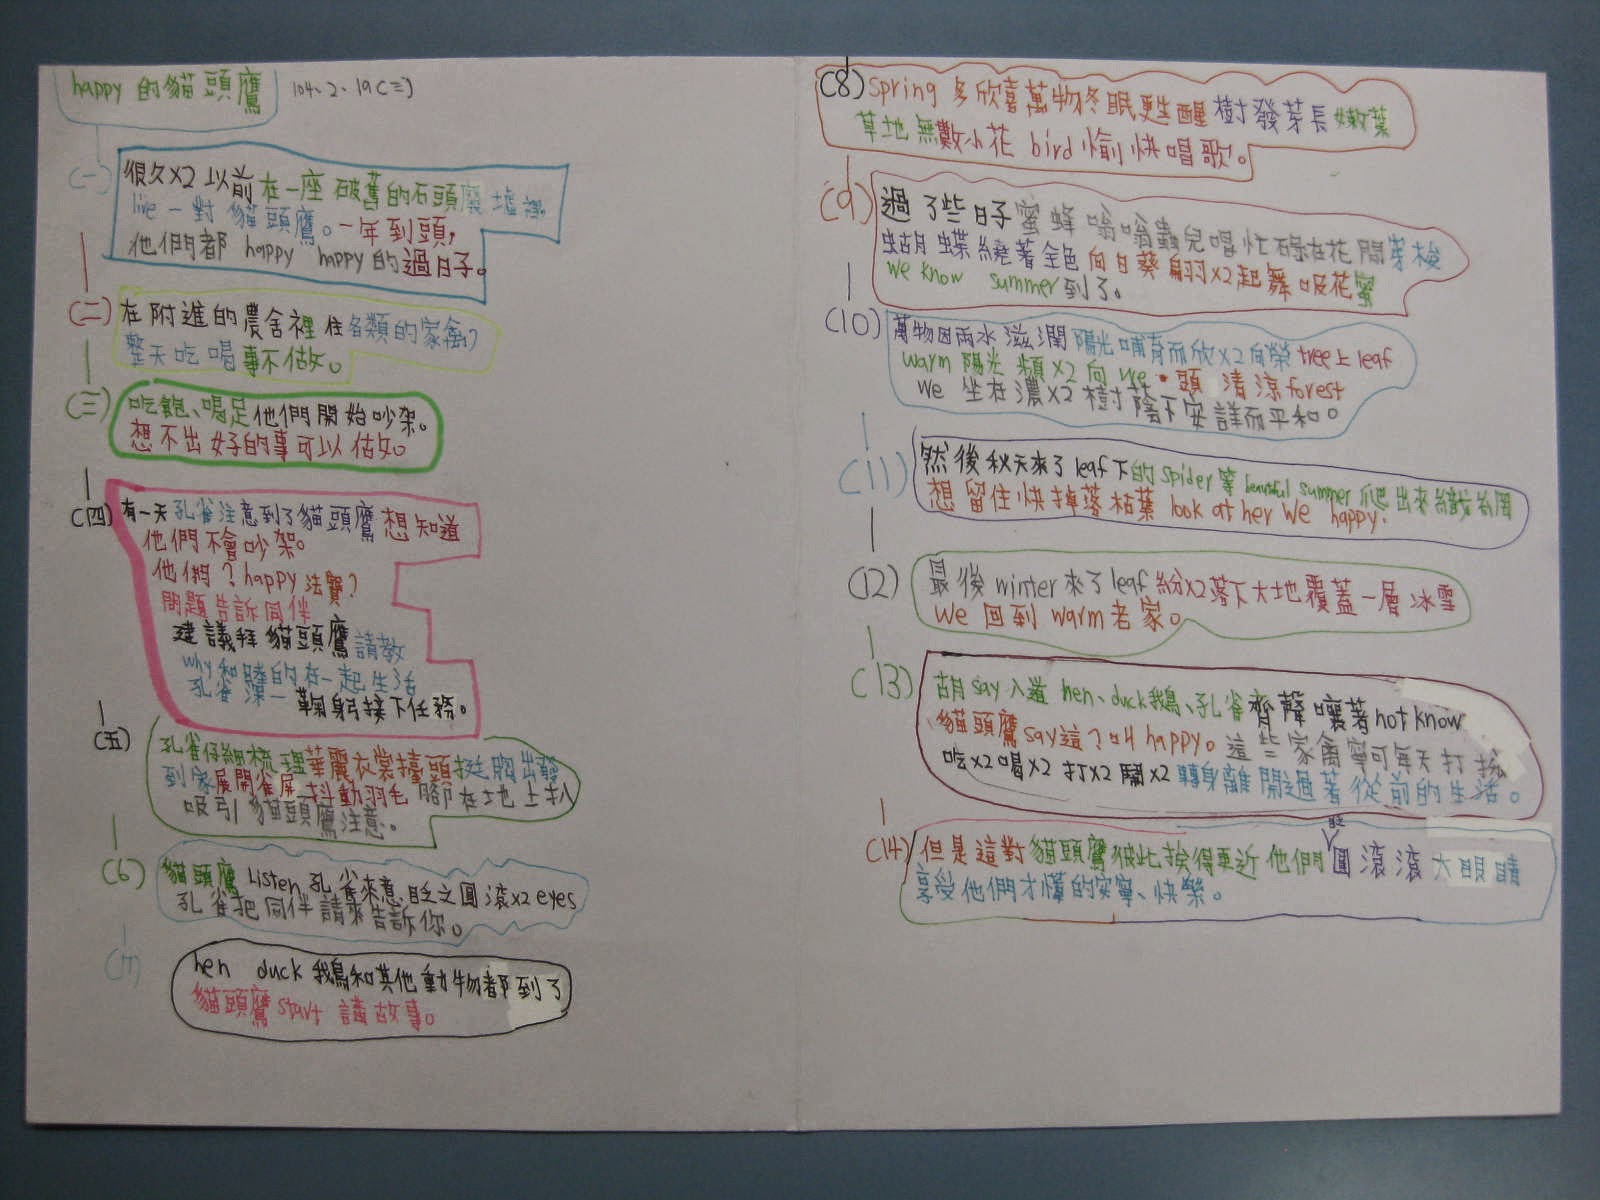 happy 的貓頭鷹 104、2、19(三)
(一) 很久x2 以前在一座 破舊的石頭廢墟裡
live 一對 貓頭鷹。一年到頭,
他們都 happy happy的過日子。
(二) 在附進的農舍裡 住各類的家禽,
整天吃喝事不做。
(三) 吃飽、喝足他們開始吵架。
想不出好的事可以做。
(四) 有一天孔雀注意到了貓頭鷹想知道
他們不會吵架。
他們?happy 法寶?
問題告訴同伴
建議拜貓頭鷹請教
why和睦的在一起生活
孔雀深一鞠躬接下任務。
(五) 孔雀仔細梳理華麗衣裳擡頭挺胸出發
到家展開雀屏 抖動羽毛 腳在地上扒
吸引貓頭鷹注意。
(6) 貓頭鷹 Listen 孔雀來意 眨之圓滾x2 eyes
孔雀把同伴請來告訴你。
(7) hen duck 鵝和其他動物都到了
貓頭鷹 start 講故事。
(8) spring 多欣喜萬物冬眠更生醒 樹發芽長嫩葉
草地無數小花 bird 愉快唱歌。
(9) 過了些日子蜜蜂嗡嗡蟲兒唱忙碌在花間穿梭
蝴蝶繞著金色向日葵翩羽x2起舞吸花蜜
we know summer到了。
(10) 萬物因雨水滋潤 陽光哺育而欣x2向榮 tree上leaf
warm 陽光 頻x2 向 we 頭 清涼forest
we 坐在濃x2樹蔭下安詳而平和。
(11) 然後秋天來了leaf下的spider等 beautiful summer 爬出來織網
想留住快掉落枯葉 look at her we happy.
(12) 最後winter來了leaf紛x2落下大地覆蓋一層冰雪
we 回到 warm老家。
(13) 胡say八道 hen、duck鵝、孔雀齊聲嚷著not know
貓頭鷹say這?叫 happy。這些家禽寧可每天打扮
吃x2喝x2 打x2 鬧x2 轉身離開過著從前的生活。
(14) 但是這對貓頭鷹彼此挨得更近他們圓滾滾大眼睛
享受他們才懂的安寧、快樂。